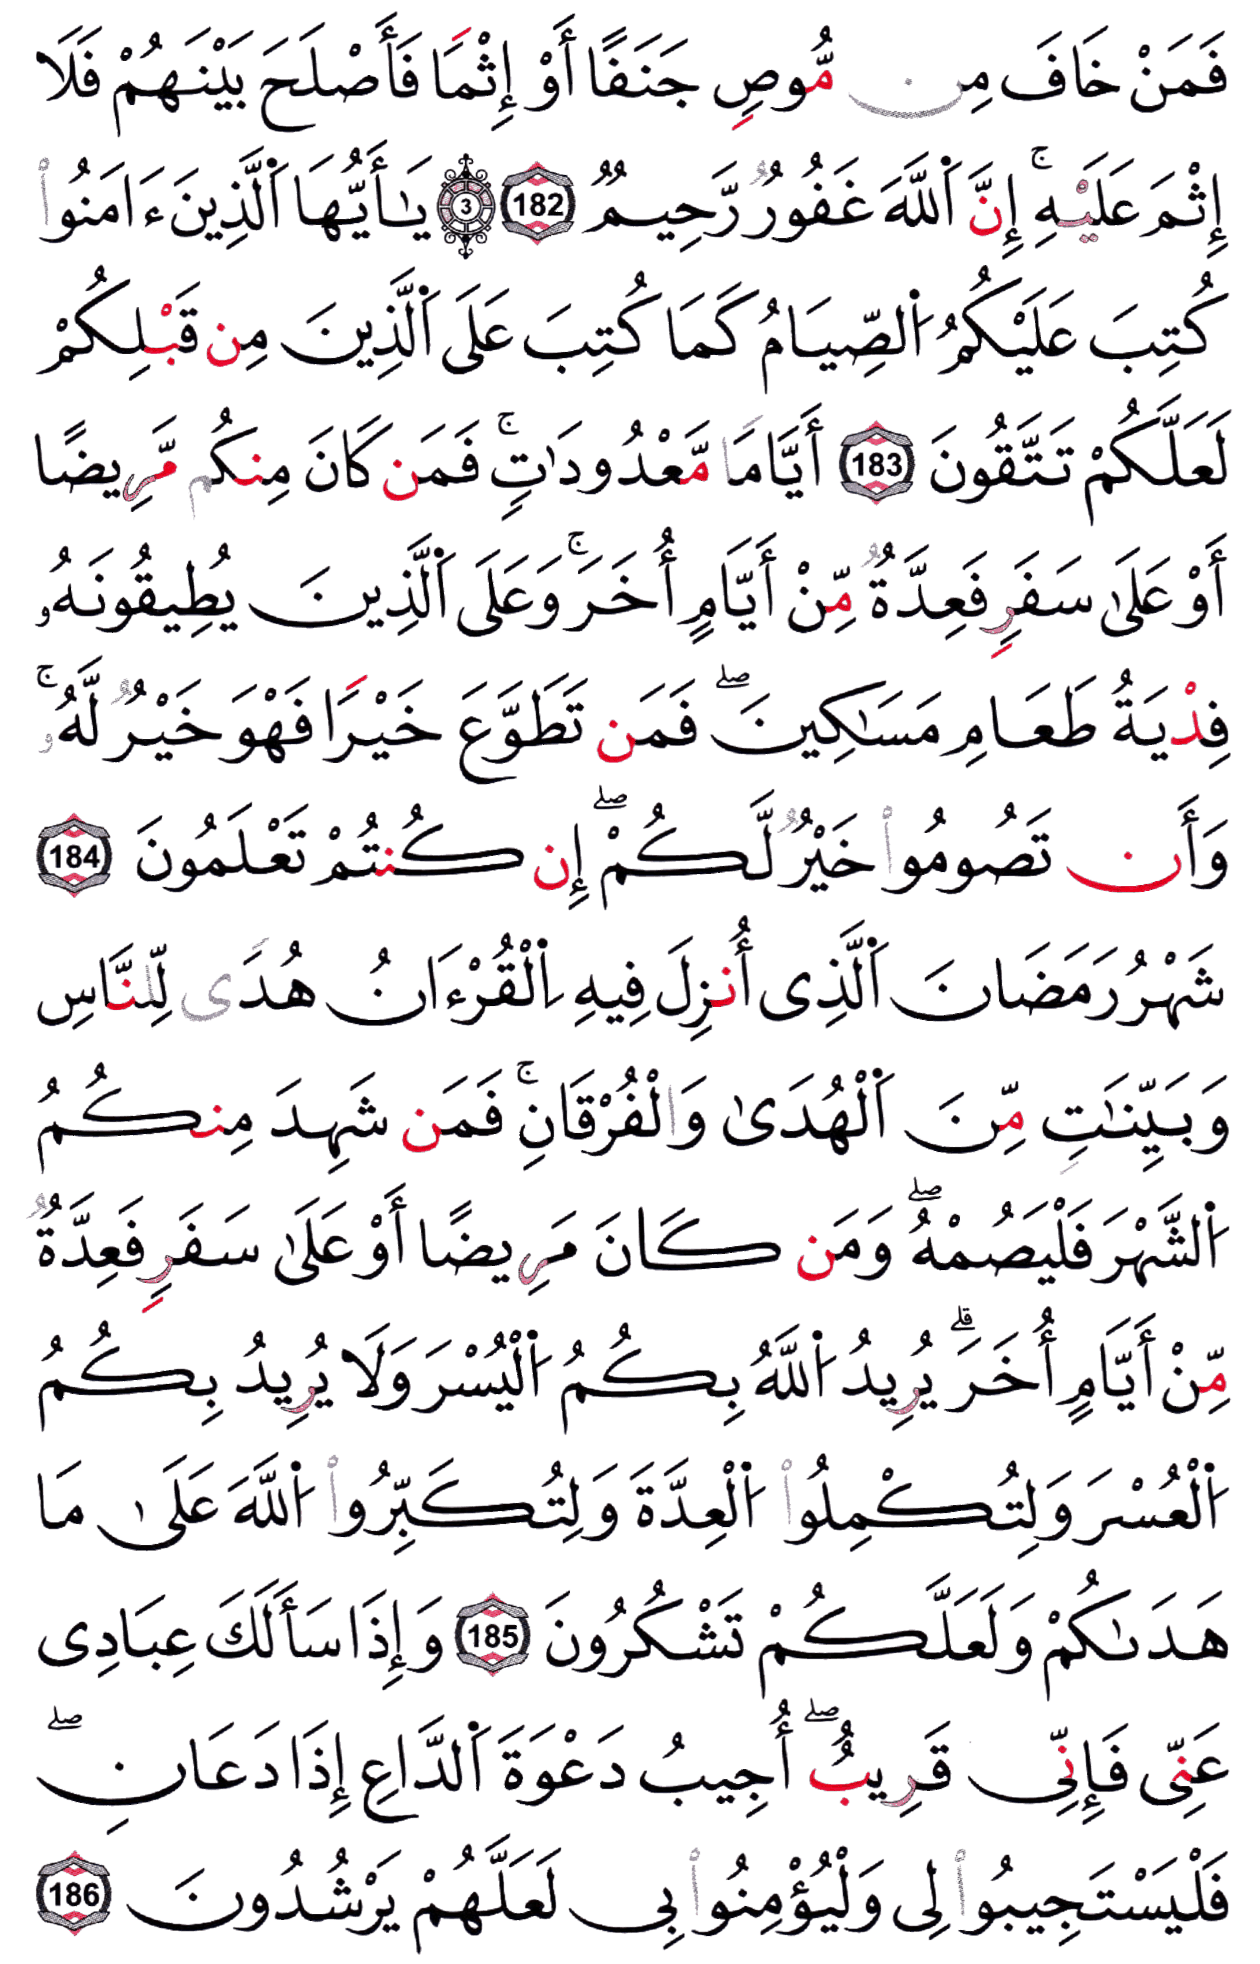 فَمَنْ خَافَ مِن مُّوصٍ جَنَفًا أَوْ إِثْمًا فَأَصْلَحَ بَيْنَهُمْ فَلَا
إِثْمَ عَلَيْهِ ۚ إِنَّ اَ۬للَّهَ غَفُورٌ رَّحِيمٌ 182 3 يَٰأَيُّهَا اَ۬لَّذِينَ ءَامَنُواْ
كُتِبَ عَلَيْكُمُ اُ۬لصِّيَامُ كَمَا كُتِبَ عَلَى اَ۬لَّذِينَ مِن قَبْلِكُمْ
لَعَلَّكُمْ تَتَّقُونَ 183 أَيَّامًا مَّعْدُودَٰتٍ ۚ فَمَن كَانَ مِنكُم مَّرِيضًا
أَوْ عَلَىٰ سَفَرٍ فَعِدَّةٌ مِّنْ أَيَّامٍ أُخَرَ ۚ وَعَلَى اَ۬لَّذِينَ يُطِيقُونَهُۥ
فِدْيَةُ طَعَامِ مَسَٰكِينَ ۖ فَمَن تَطَوَّعَ خَيْرًا فَهْوَ خَيْرٌ لَّهُۥ ۚ
وَأَن تَصُومُواْ خَيْرٌ لَّكُمْ ۖ إِن كُنتُمْ تَعْلَمُونَ 184
شَهْرُ رَمَضَانَ اَ۬لَّذِى أُنزِلَ فِيهِ اِ۬لْقُرْءَانُ هُدًى لِّلنَّاسِ
وَبَيِّنَٰتٍ مِّنَ اَ۬لْهُدَىٰ وَالْفُرْقَانِ ۚ فَمَن شَهِدَ مِنكُمُ
اُ۬لشَّهْرَ فَلْيَصُمْهُ ۖ وَمَن كَانَ مَرِيضًا أَوْ عَلَىٰ سَفَرٍ فَعِدَّةٌ
مِّنْ أَيَّامٍ أُخَرَ ۗ يُرِيدُ اُ۬للَّهُ بِكُمُ اُ۬لْيُسْرَ وَلَا يُرِيدُ بِكُمُ
اُ۬لْعُسْرَ وَلِتُكْمِلُواْ اُ۬لْعِدَّةَ وَلِتُكَبِّرُواْ اُ۬للَّهَ عَلَىٰ مَا
هَدَىٰكُمْ وَلَعَلَّكُمْ تَشْكُرُونَ 185 وَإِذَا سَأَلَكَ عِبَادِى
عَنِّى فَإِنِّى قَرِيبٌ ۖ أُجِيبُ دَعْوَةَ اَ۬لدَّاعِ إِذَا دَعَانِ ۖ
فَلْيَسْتَجِيبُواْ لِى وَلْيُؤْمِنُواْ بِى لَعَلَّهُمْ يَرْشُدُونَ 186